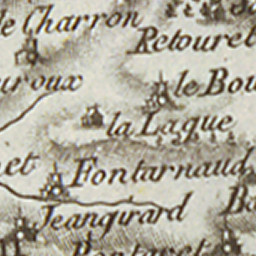 le Charron
Retouret
uroux
le Bou
la Lague
et
Fontarnaud
Jeangirard
Ba